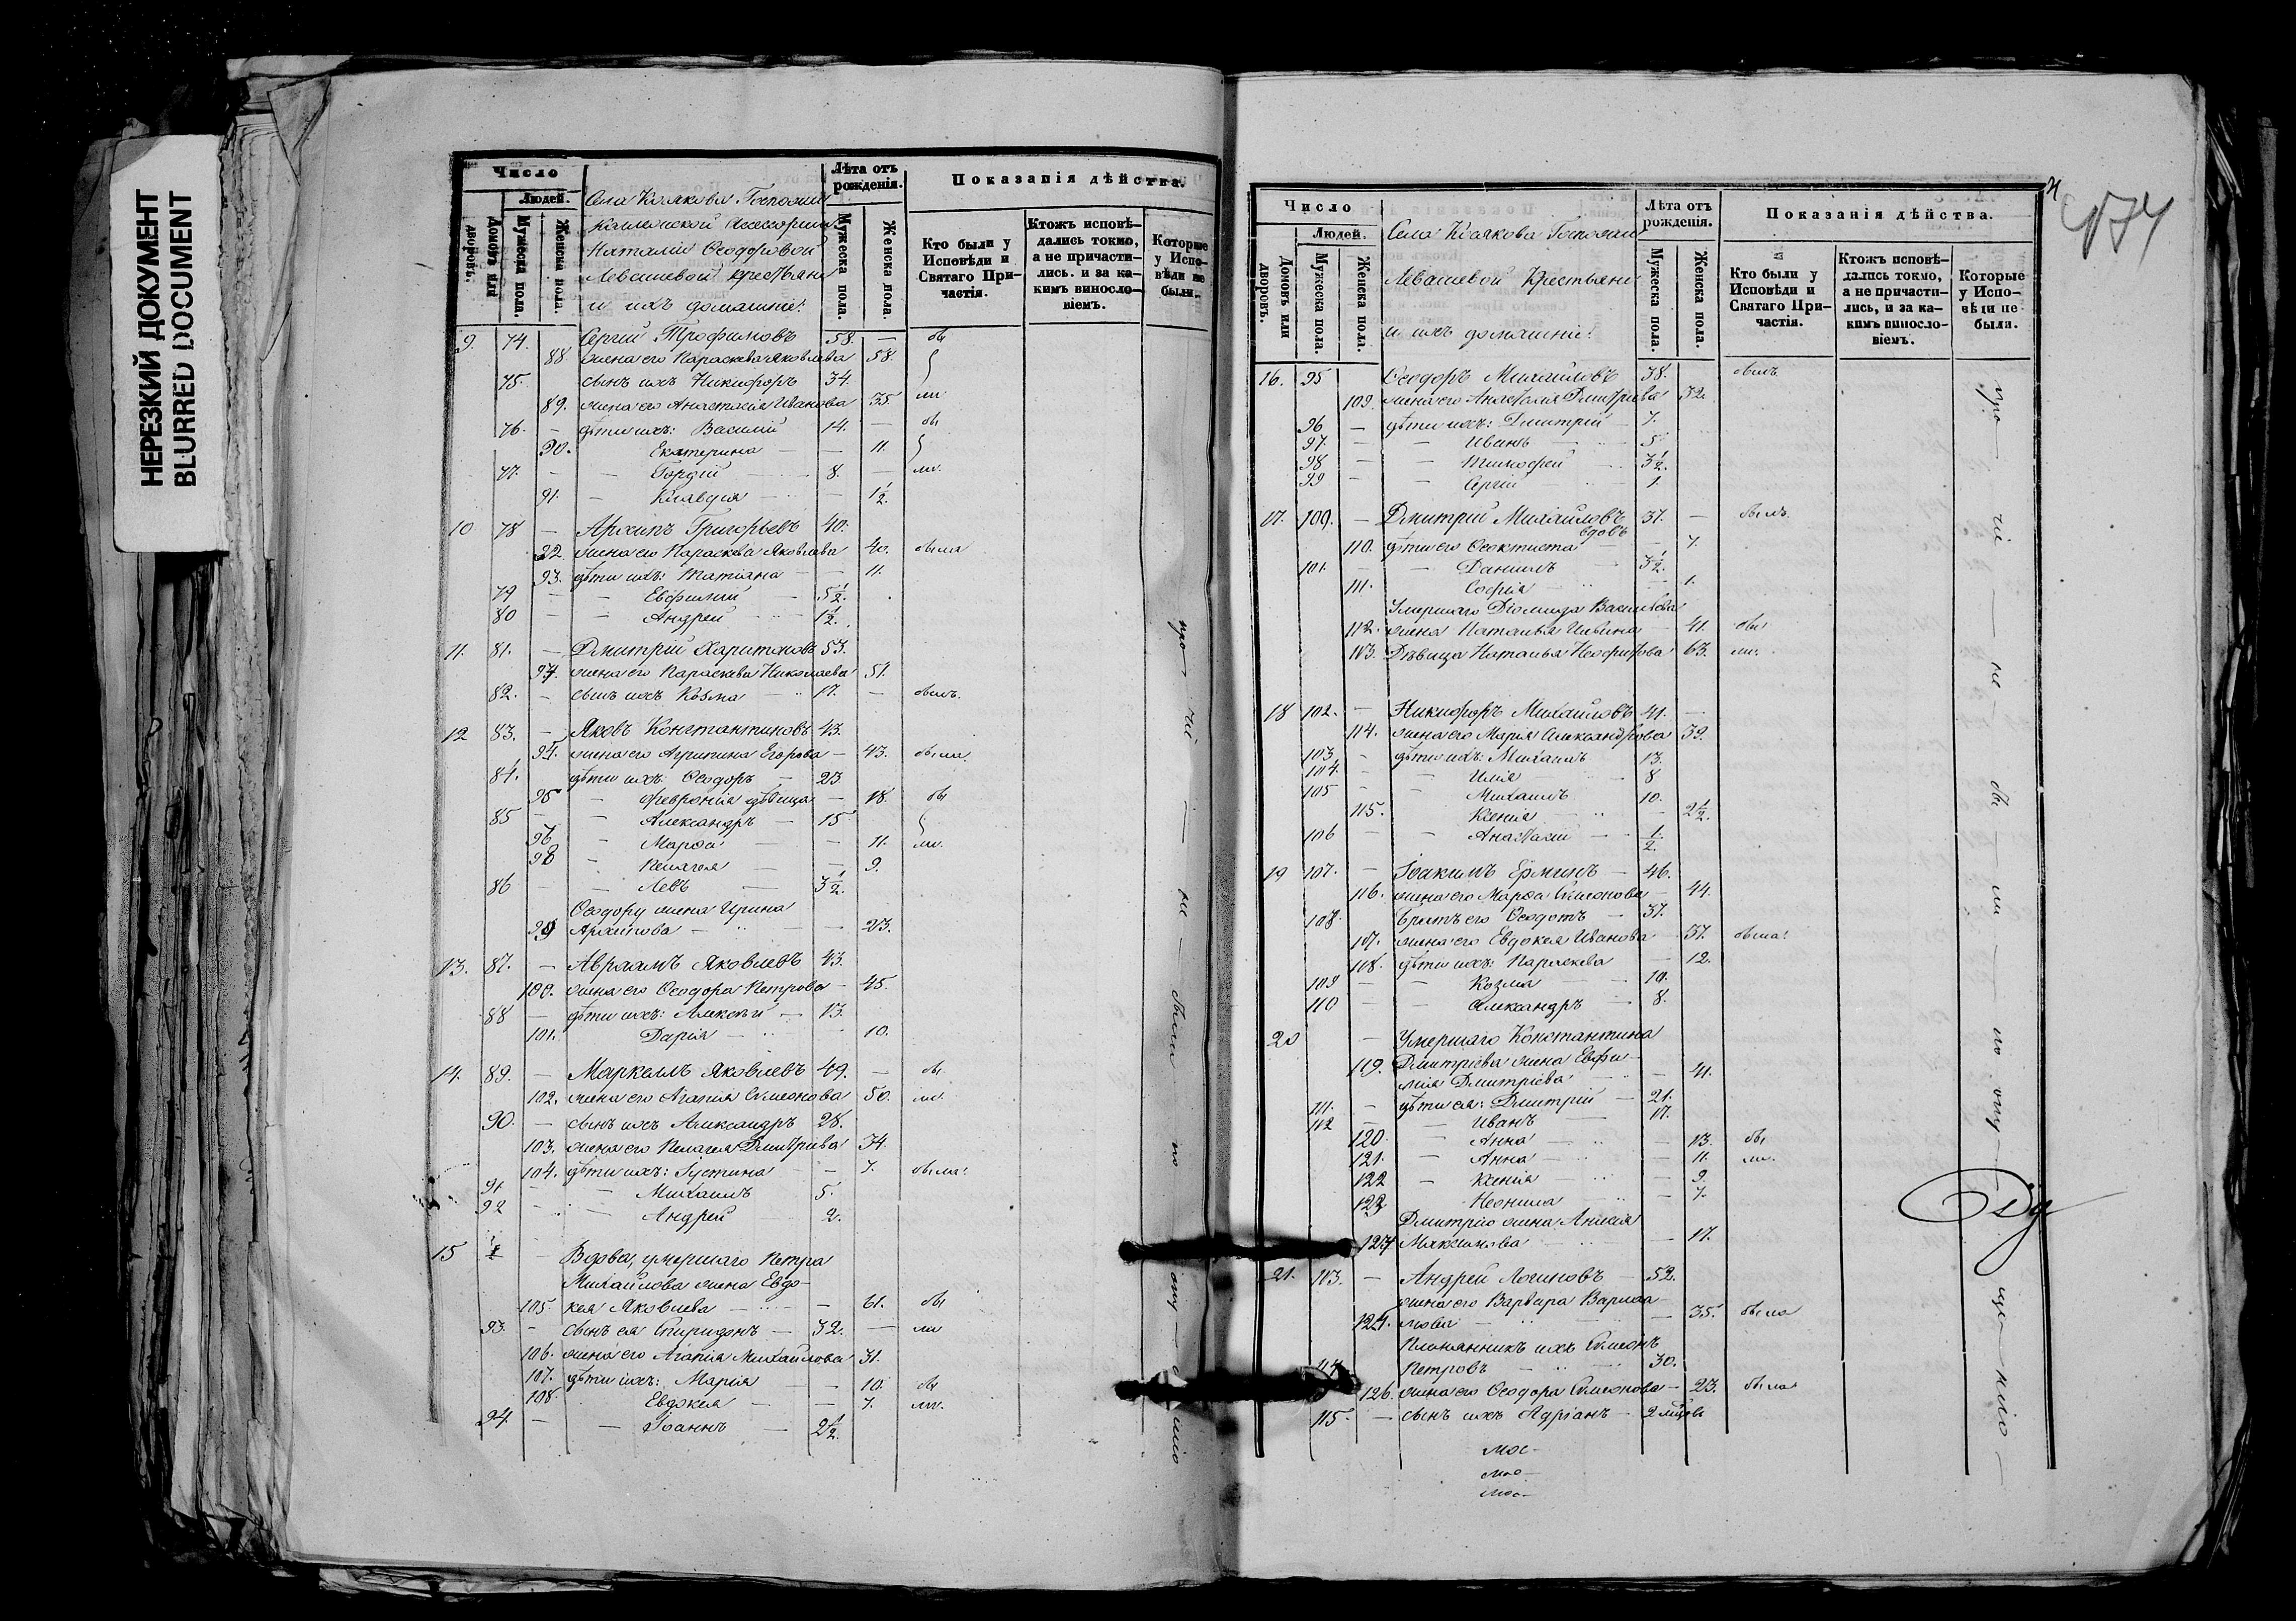 НЕРЕЗКИЙ ДОКУМЕНТ
BLURRED DOCUMENT
Число
Людей.
Домовъ или дворовъ.
Мужеска пола.
Женска пола.
Села Коякова Госпожи
Наталіи Ѳеодоровой
Левашевой крестьяне
и ихъ домашніе:
Лѣта отъ рожденія.
Мужеска пола.
Женска пола.
Показанія дѣйства.
Кто были у Исповѣди и Святаго При-частія.
Ктожъ исповѣ-дались токмо, а не причасти-лись. и за ка-кимъ винослo-віемъ.
Которые у Испо-вѣди не были.
9. 74. Сергій Трофимовъ 58. — бы
88 жена его Параскева Яковлева 58.
75. сынъ ихъ Никифоръ 34.
89. жена его Анастасія Иванова 35 ли
76. — дѣти ихъ: Василій 14. — бы
90. Екатерина — — 11.
77. — — Гордій 8. — ли.
91. — Клавдія — 1 1/2
10 78 — Архипъ Григорьевъ 40.
92 жена его Параскева Яковлева 40. была
93. дѣти ихъ: Татіана — — 11.
79 — — Евфимій — 5 1/2.
80 — — Андрей 1 1/2.
11. 81. — Дмитрій Харитоновъ 53.
94. жена его Параскева Николаева 51.
82. — сынъ ихъ Козма 17. — былъ.
12 83. — Яковъ Константиновъ 43.
95. жена его Агрипина Егорова — 43. была.
84. дѣти ихъ: Ѳеодоръ — 23
96 — Феєронія дѣвица — 18. бы
85 — — Александръ — 15
97 — Марѳа — 11. ли.
98 — Пелагея — 9.
86 — — Левъ — 3 1/2.
Ѳеодору жена Ирина
99 Архипова — — 23.
13. 87. — Авраамъ Яковлевъ 43.
100. жена его Ѳеодора Петрова — 45.
88 — дѣти ихъ: Алексѣй — 13.
101. Дарія — 10.
14. 89. — Маркеллъ Яковлевъ 49. — бы
102. жена его Агапія Симеонова 50. ли
90. — сынъ ихъ Александръ 28.
103. жена его Пелагея Дмитріева 34
104. дѣти ихъ: Іустина — — 7. была.
91 — — Михаилъ 5.
92 — — Андрей 2.
15 — Вдова, умершаго Петра
Михайлова жена Евдо-
105. кея Яковлева — — 61. бы
93. — сынъ ея Спиридонъ — 32. — ли
106. жена его Агапія Михайлова 31.
107. дѣти ихъ: Марія — — 10. бы
108. Евдокея — — 7. ли.
94. — — Іоаннъ — 2 1/2.
474
Число
Людей.
Домовъ или дворовъ.
Мужеска пола.
Женска пола.
Села Коякова Госпожи
Левашевой Крестьяне
и ихъ домашніе:
Лѣта отъ рожденія.
Мужеска пола.
Женска пола.
Показанія дѣйства.
Кто были у Исповѣди и Святаго При-частія.
Ктожъ исповѣ-дались токмо, а не причасти-лись, и за ка-кимъ винослo-віемъ.
Которые у Испо-вѣди не были.
16. 95 Ѳеодоръ Михайловъ 38. былъ
109. жена его Анастасія Дмитріева 32.
96 — дѣти ихъ: Дмитрій — 7.
97. — — Иванъ — 5
98 — — Тимофей 3 1/2.
99 — — Сергій 1.
17. 100. — Дмитрій Михайловъ 37. — былъ.
вдовъ
110. дѣти его Ѳеоктиста — — 7.
101. — — Даніилъ 3 1/2.
111. Софія — — 1.
Умершаго Діомида Васильева
112. жена Наталья Ивлина 41. бы
113. Дѣвица Наталья Неофитова 63. ли.
18 102. — Никифоръ Михайловъ 41. —
114. жена его Марія Александрова 39.
103 — дѣти ихъ: Михаилъ 13.
104. — — Илія 8
105 — — Михаилъ 10.
115. Ксенія — — 2 1/2.
106 — — Анастасій — 1/2.
19 107. — Іоакимъ Ерминъ — 46.
116. жена его Марѳа Симеонова — 44.
108. Братъ его Ѳеодотъ — 37.
117. жена его Евдокея Иванова 37. была.
118. дѣти ихъ: Параскева — 12.
109 — — Козма — 10.
110 — — Александръ — 8.
20 — Умершаго Константина
119. Дмитріева жена Евфи-
мія Дмитріева — — 41.
111. — дѣти ея: Дмитрій — 21.
112 — — Иванъ — 17.
120. — Анна — — 13. бы
121. — Анна — — 11. ли.
122 — Ксенія — — 9.
123 Неонила — 7.
Дмитрію жена Анисія
124 Максимова — — 17.
21. 113. — Андрей Логиновъ — 52.
жена его Варвара Варѳоло-
125. 35. была
Племянникъ ихъ Симеонъ
Петровъ — 30.
126. жена его Ѳеодора Симеонова — 23. была
115. — сынъ ихъ Адріанъ — 2 мѣсяц
про — чіе — не — бы — ли — по